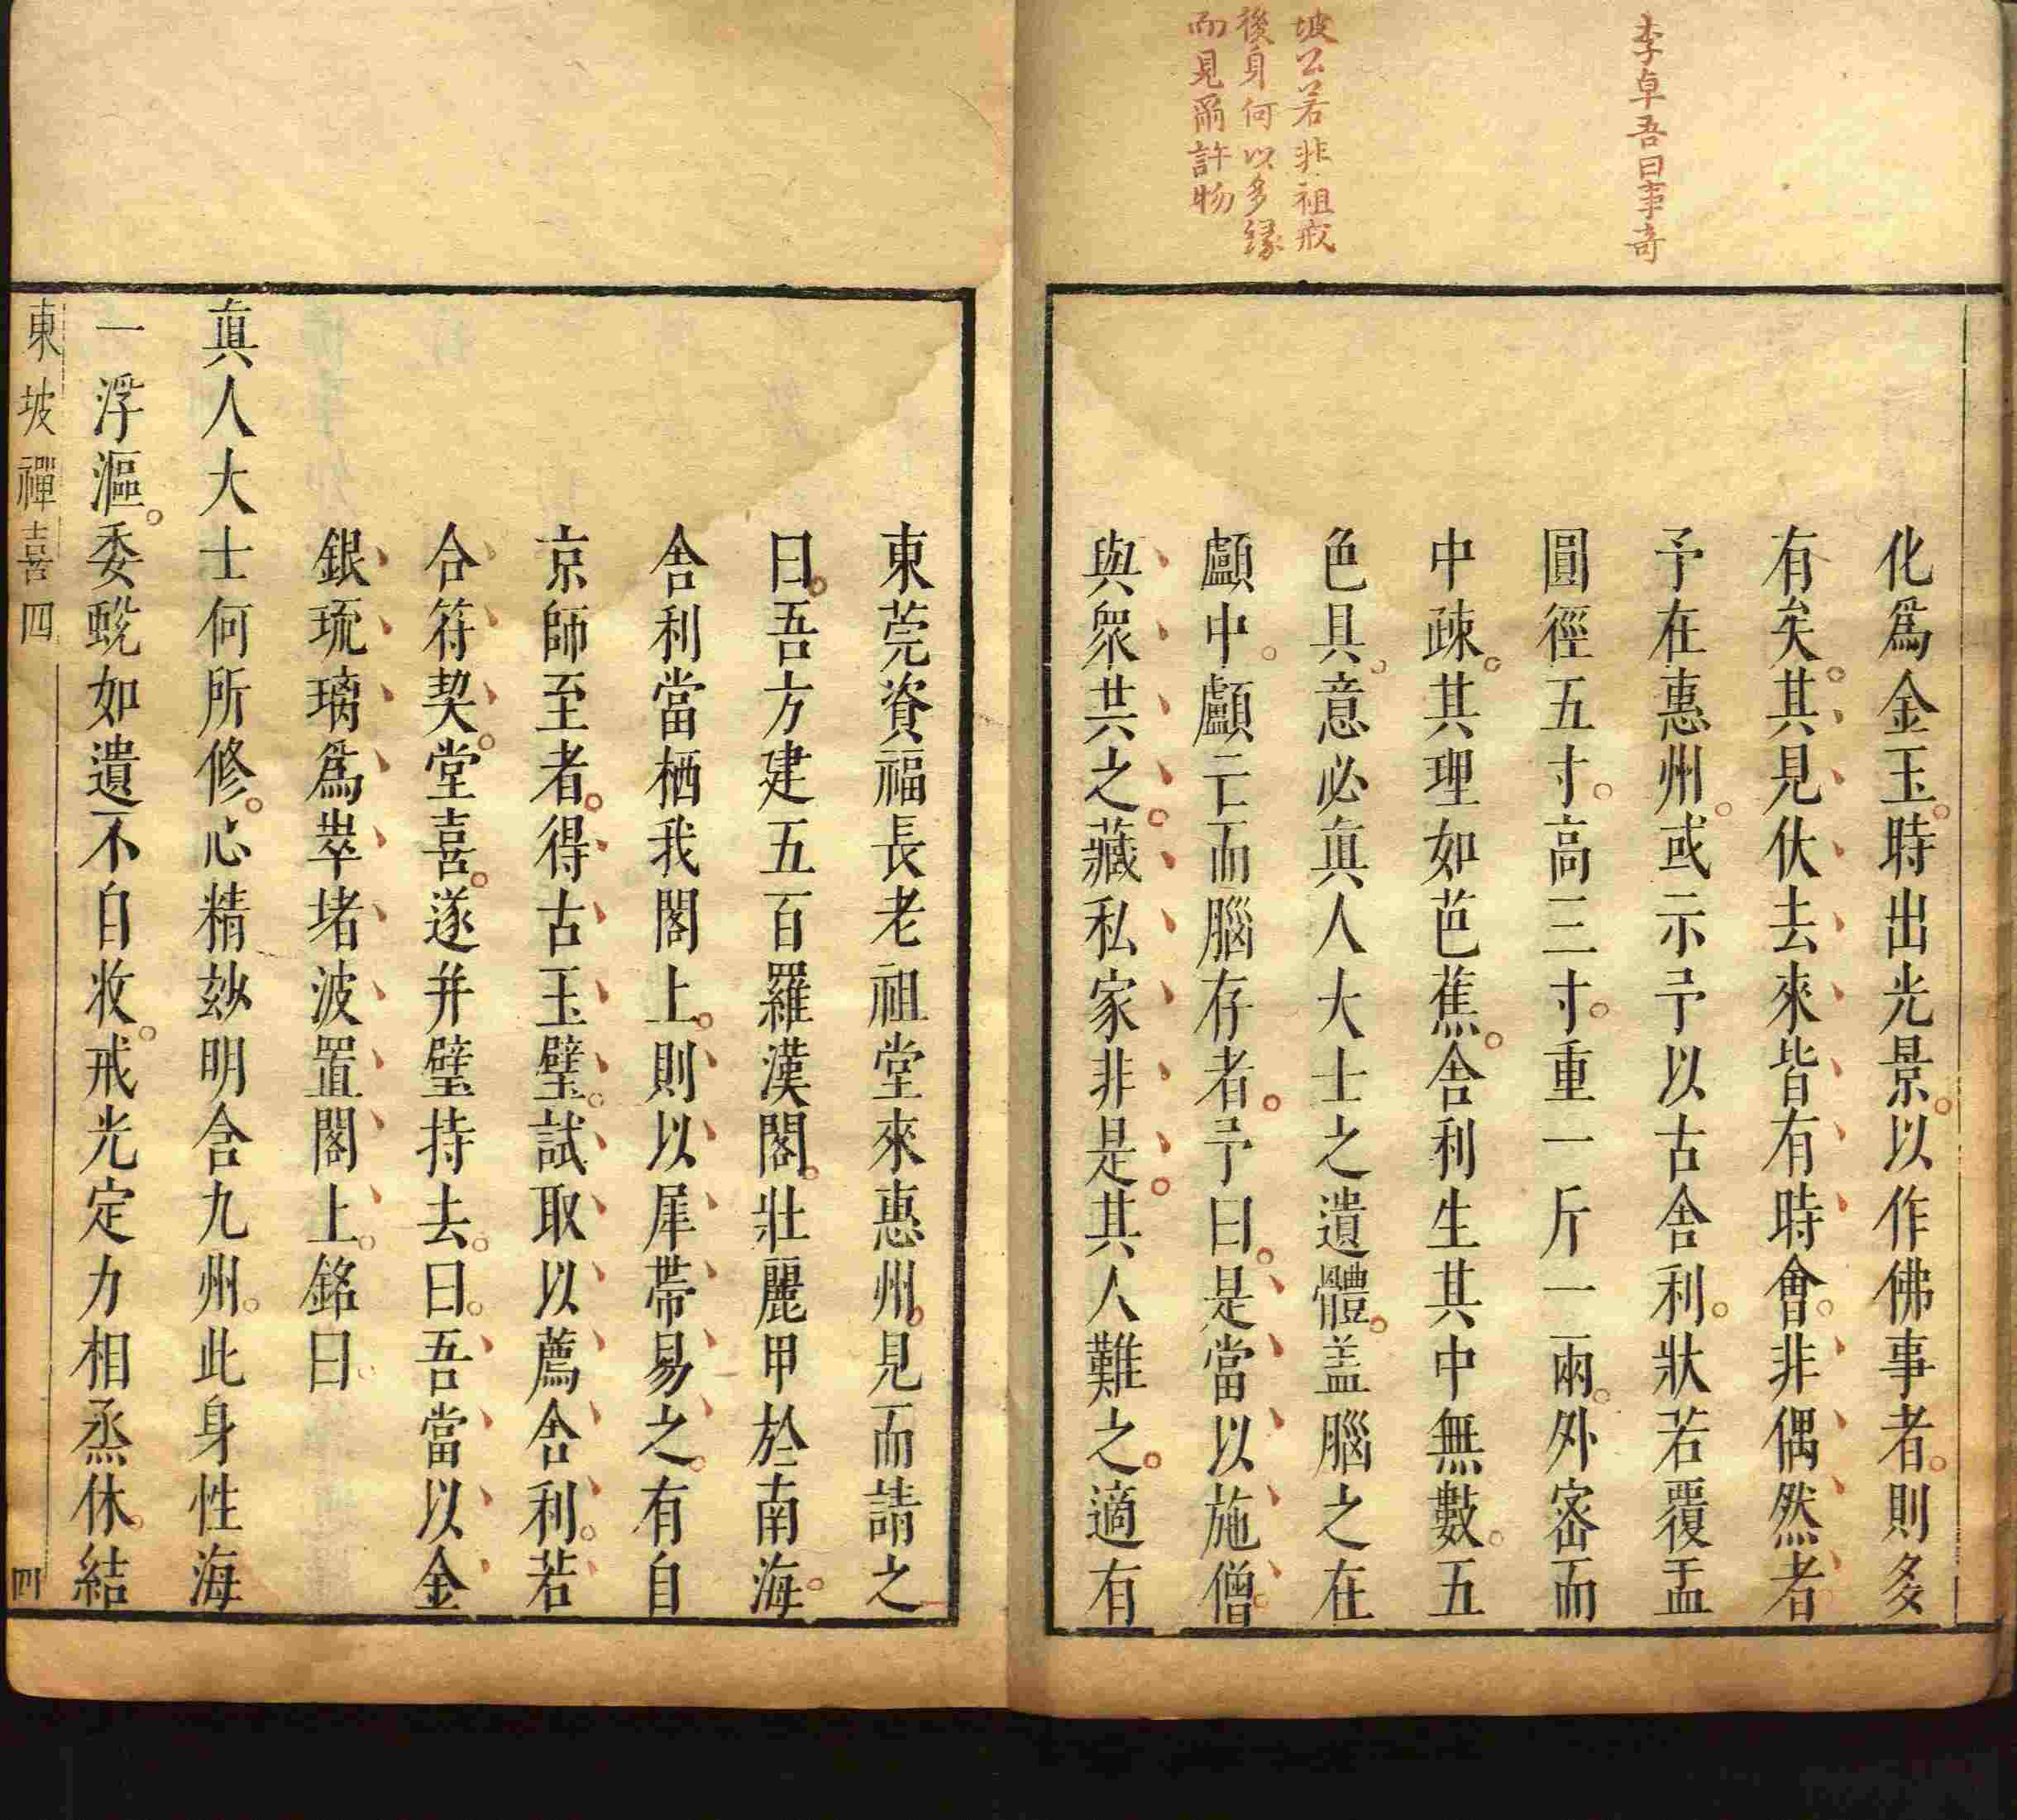 李卓吾曰事奇
坡公若非祖戒
後身何以多緣
而見爾許物
化爲金玉。時出光景。以作佛事者。則多
有矣。其見伏去來皆有時會。非偶然者
予在惠州。或示予以古舍利。狀若覆盂
圓徑五寸。高三寸。重一斤一兩。外密而
中疎。其理如芭蕉。舍利生其中無數。五
色具。意必真人大士之遺體。盖腦之在
顱中。顱亡而腦存者。予曰。是當以施僧。
與眾共之。藏私家非是。其人難之。適有
東莞資福長老祖堂來惠州。見而請之
曰。吾方建五百羅漢閣。壯麗甲於南海。
舍利當栖我閣上。則以犀帶易之。有自
京師至者。得古玉璧。試取以薦舍利。若
合符契。堂喜。遂并璧持去。曰。吾當以金
銀琉璃爲崒堵波置閣上。銘曰。
真人大士何所修。心精玅明含九州。此身性海
一浮漚。委蛻如遺不自收。戒光定力相烝休。結
東坡禪喜四
四